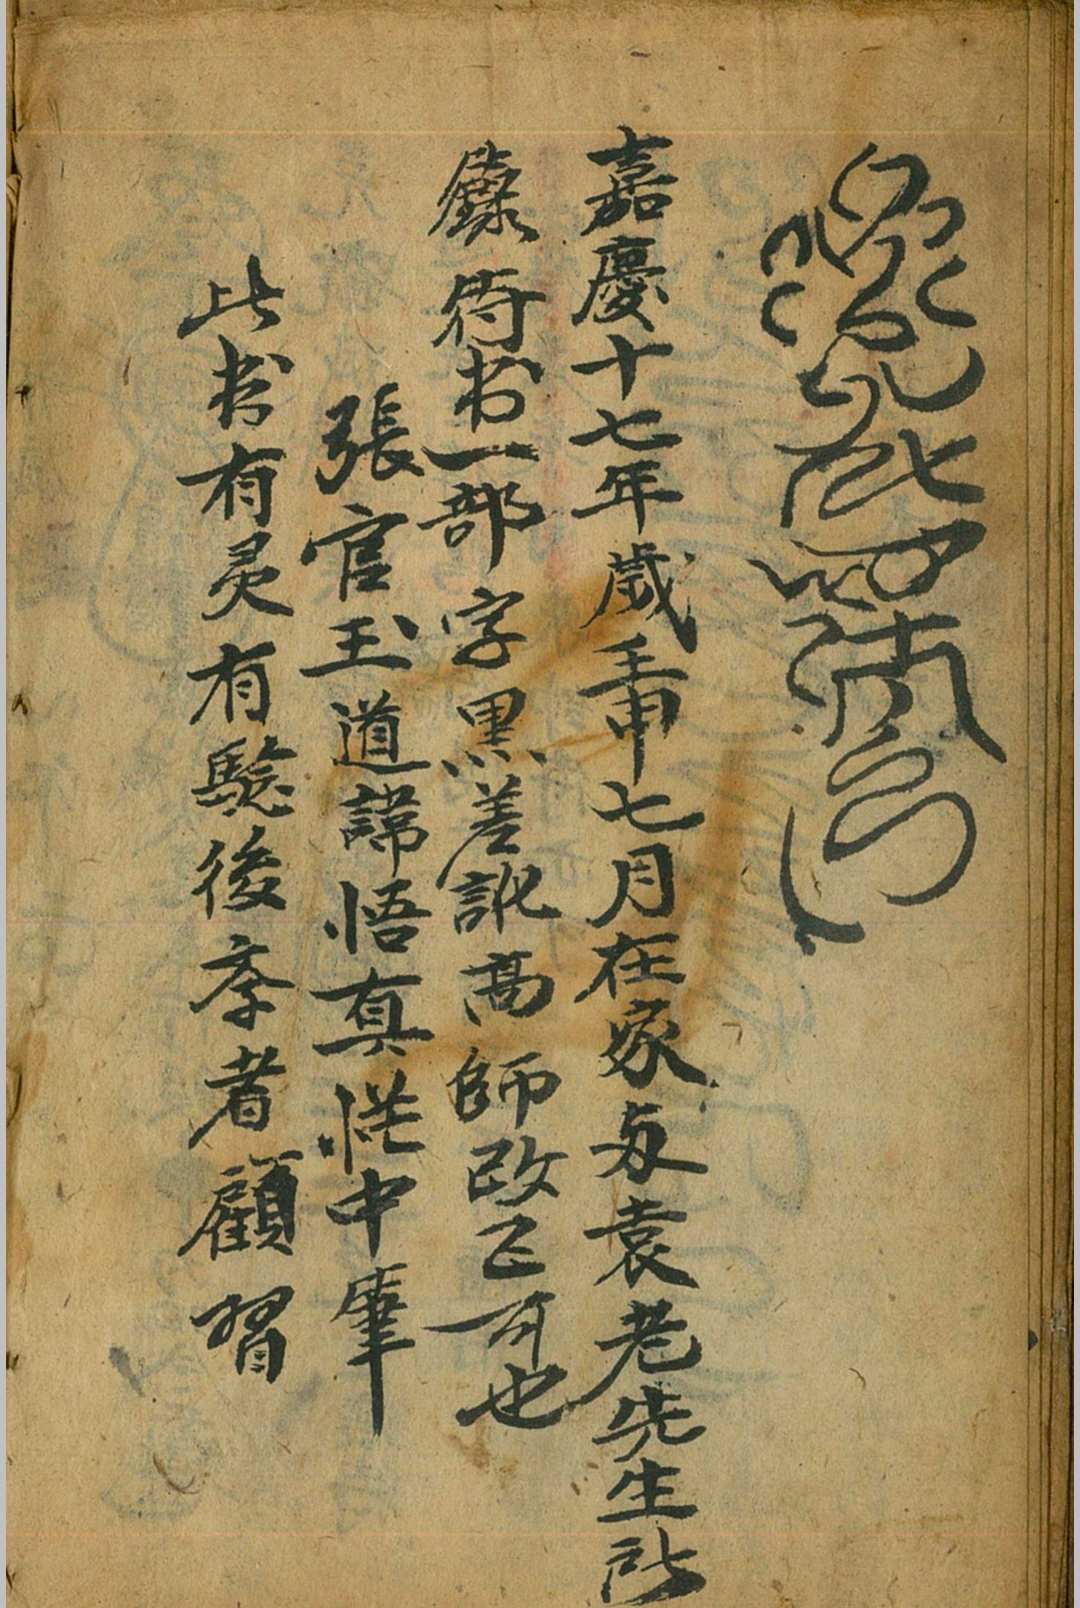 嘉慶十七年歲壬申七月在家与袁老先生所
錄符书一部字黑差訛高師改正可也
張官玉道諱悟真慌中筆
此书有灵有驗後孝者顧習